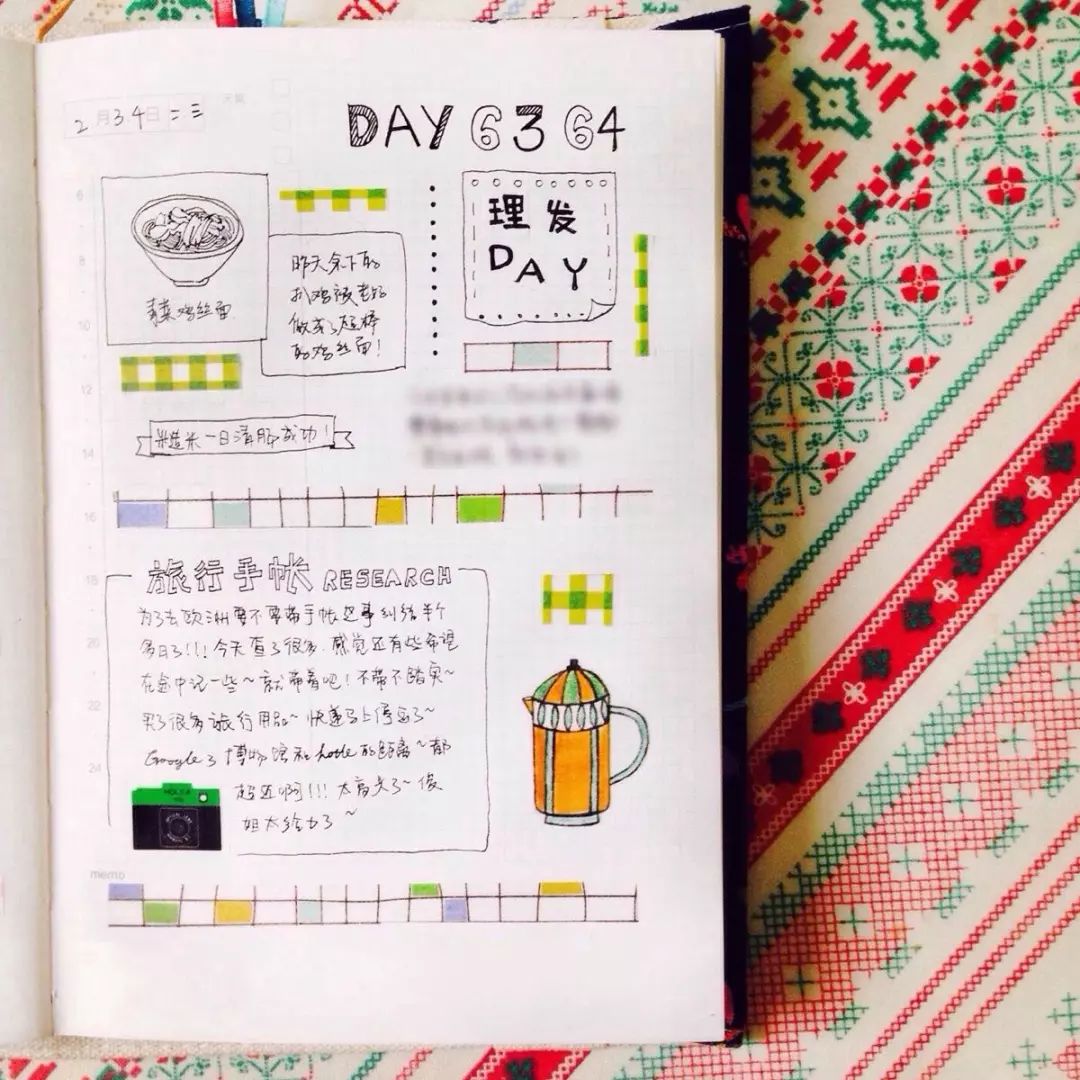 2月3.4日 二 三
天氣
DAY 63 64
6
8
10
12
14
16
18
20
22
24
青菜鸡丝面
昨天余下的
扒鸡被老妈
做成了超棒
的鸡丝面!
理发
DAY
糙米一日清肠成功!
旅行手帐 RESEARCH
为了去欧洲要不要带手帐这事纠结半个
多月了!!! 今天查了很多.感觉还有些希望
在途中记一些~就带着吧!不带不踏实~
买了很多旅行用品~ 快递马上停运了~
Google了博物馆和hotle的距离~都
超近啊!!! 太奇美了~ 俊
姐太给力了~
HOLGA
memo